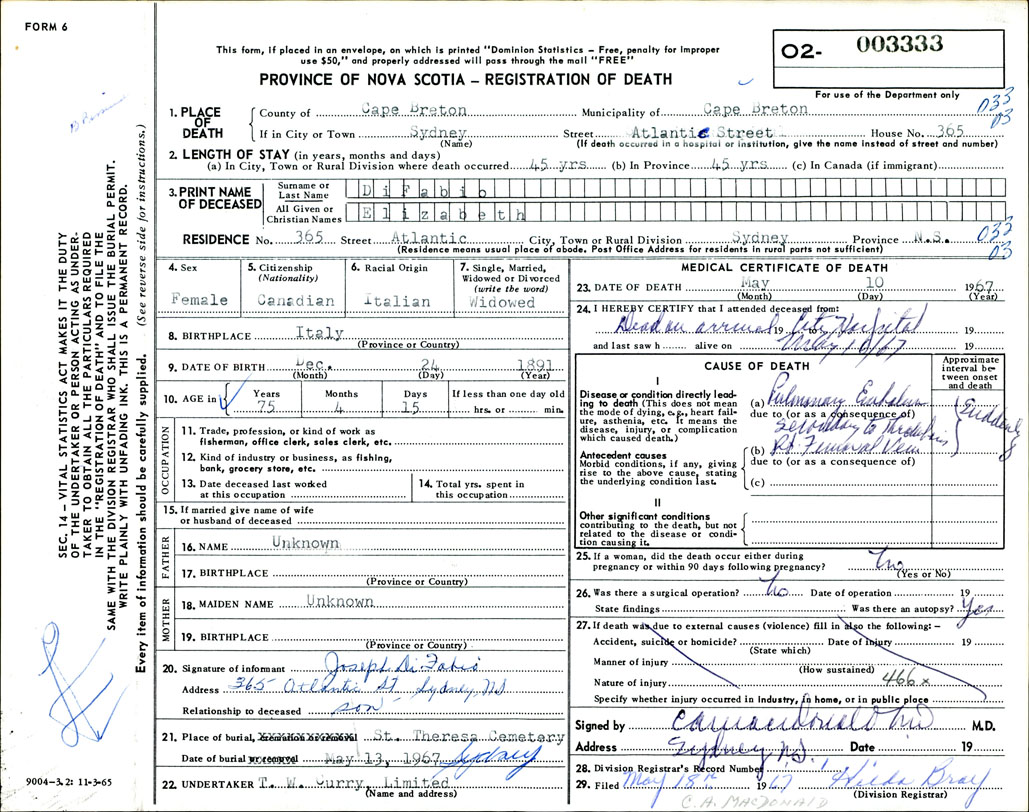 FORM 6
This form, if placed in an envelope, on which is printed "Dominion Statistics – Free, penalty for improper
use $50," and properly addressed will pass through the mail "FREE"
O2- 003333
PROVINCE OF NOVA SCOTIA – REGISTRATION OF DEATH
For use of the Department only
033
03
1. PLACE OF DEATH
County of Cape Breton Municipality of Cape Breton
If in City or Town Sydney Street Atlantic Street House No. 365
(Name) (If death occurred in a hospital or institution, give the name instead of street and number)
2. LENGTH OF STAY (in years, months and days)
(a) In City, Town or Rural Division where death occurred 45 yrs (b) In Province 45 yrs (c) In Canada (if immigrant)
3. PRINT NAME OF DECEASED
Surname or Last Name DiFabio
All Given or Christian Names Elizabeth
033
03
RESIDENCE No. 365 Street Atlantic City, Town or Rural Division Sydney Province N.S.
(Residence means usual place of abode. Post Office Address for residents in rural parts not sufficient)
4. Sex
Female
5. Citizenship
(Nationality)
Canadian
6. Racial Origin
Italian
7. Single, Married,
Widowed or Divorced
(write the word)
Widowed
8. BIRTHPLACE Italy
(Province or Country)
9. DATE OF BIRTH Dec. 24 1891
(Month) (Day) (Year)
10. AGE in
Years Months Days If less than one day old
75 4 15 hrs. or min.
OCCUPATION
11. Trade, profession, or kind of work as
fisherman, office clerk, sales clerk, etc.
12. Kind of industry or business, as fishing,
bank, grocery store, etc.
13. Date deceased last worked
at this occupation
14. Total yrs. spent in
this occupation
15. If married give name of wife
or husband of deceased
FATHER
16. NAME Unknown
17. BIRTHPLACE
(Province or Country)
MOTHER
18. MAIDEN NAME Unknown
19. BIRTHPLACE
(Province or Country)
20. Signature of informant Joseph Di Fabio
Address 365 Atlantic St. Sydney, NS
Relationship to deceased son
21. Place of burial, St. Theresa Cemetery
Date of burial May 13, 1967 Sydney
22. UNDERTAKER T. W. Curry, Limited
(Name and address)
MEDICAL CERTIFICATE OF DEATH
23. DATE OF DEATH May 10 1967
(Month) (Day) (Year)
24. I HEREBY CERTIFY that I attended deceased from:
Dead on arrival 19 to City Hospital 19
and last saw h alive on May 10/67 19
CAUSE OF DEATH
Approximate
interval be-
tween onset
and death
I
Disease or condition directly lead-
ing to death (This does not mean
the mode of dying, e.g., heart fail-
ure, asthenia, etc. It means the
disease, injury, or complication
which caused death.)
(a) Pulmonary Embolism
due to (or as a consequence of)
Secondary to Thrombosis
Suddenly
Antecedent causes
Morbid conditions, if any, giving
rise to the above cause, stating
the underlying condition last.
(b) Rt. Femoral Vein
due to (or as a consequence of)
(c)
II
Other significant conditions
contributing to the death, but not
related to the disease or condi-
tion causing it.
25. If a woman, did the death occur either during
pregnancy or within 90 days following pregnancy? No
(Yes or No)
26. Was there a surgical operation? No Date of operation 19
State findings Was there an autopsy? Yes
27. If death was due to external causes (violence) fill in also the following:–
Accident, suicide or homicide? Date of injury 19
(State which)
Manner of injury
(How sustained)
Nature of injury 466x
Specify whether injury occurred in industry, in home, or in public place
Signed by C A MacDonald MD M.D.
Address Sydney N.S. Date 19
28. Division Registrar's Record Number
29. Filed May 18th 1967 Hilda Bray
(Division Registrar)
C. A. MACDONALD
SEC. 14 – VITAL STATISTICS ACT MAKES IT THE DUTY
OF THE UNDERTAKER OR PERSON ACTING AS UNDER-
TAKER TO OBTAIN ALL THE PARTICULARS REQUIRED
IN THE "REGISTRATION OF DEATH" AND TO FILE THE
SAME WITH THE DIVISION REGISTRAR WHO SHALL ISSUE THE BURIAL PERMIT.
WRITE PLAINLY WITH UNFADING INK. THIS IS A PERMANENT RECORD.
Every item of information should be carefully supplied. (See reverse side for instructions.)
9004-3.2: 11-3-65